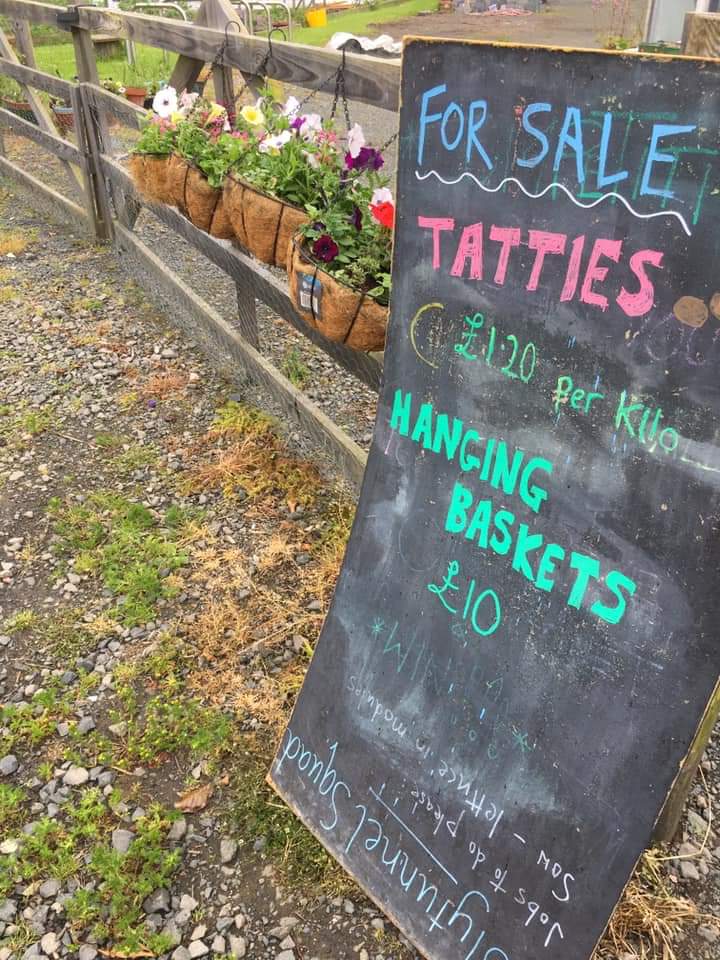 FOR SALE
TATTIES
£1.20 per Kilo
HANGING
BASKETS
£10
Polytunnel Squad
Jobs to do please:
Sow - lettuce in modules